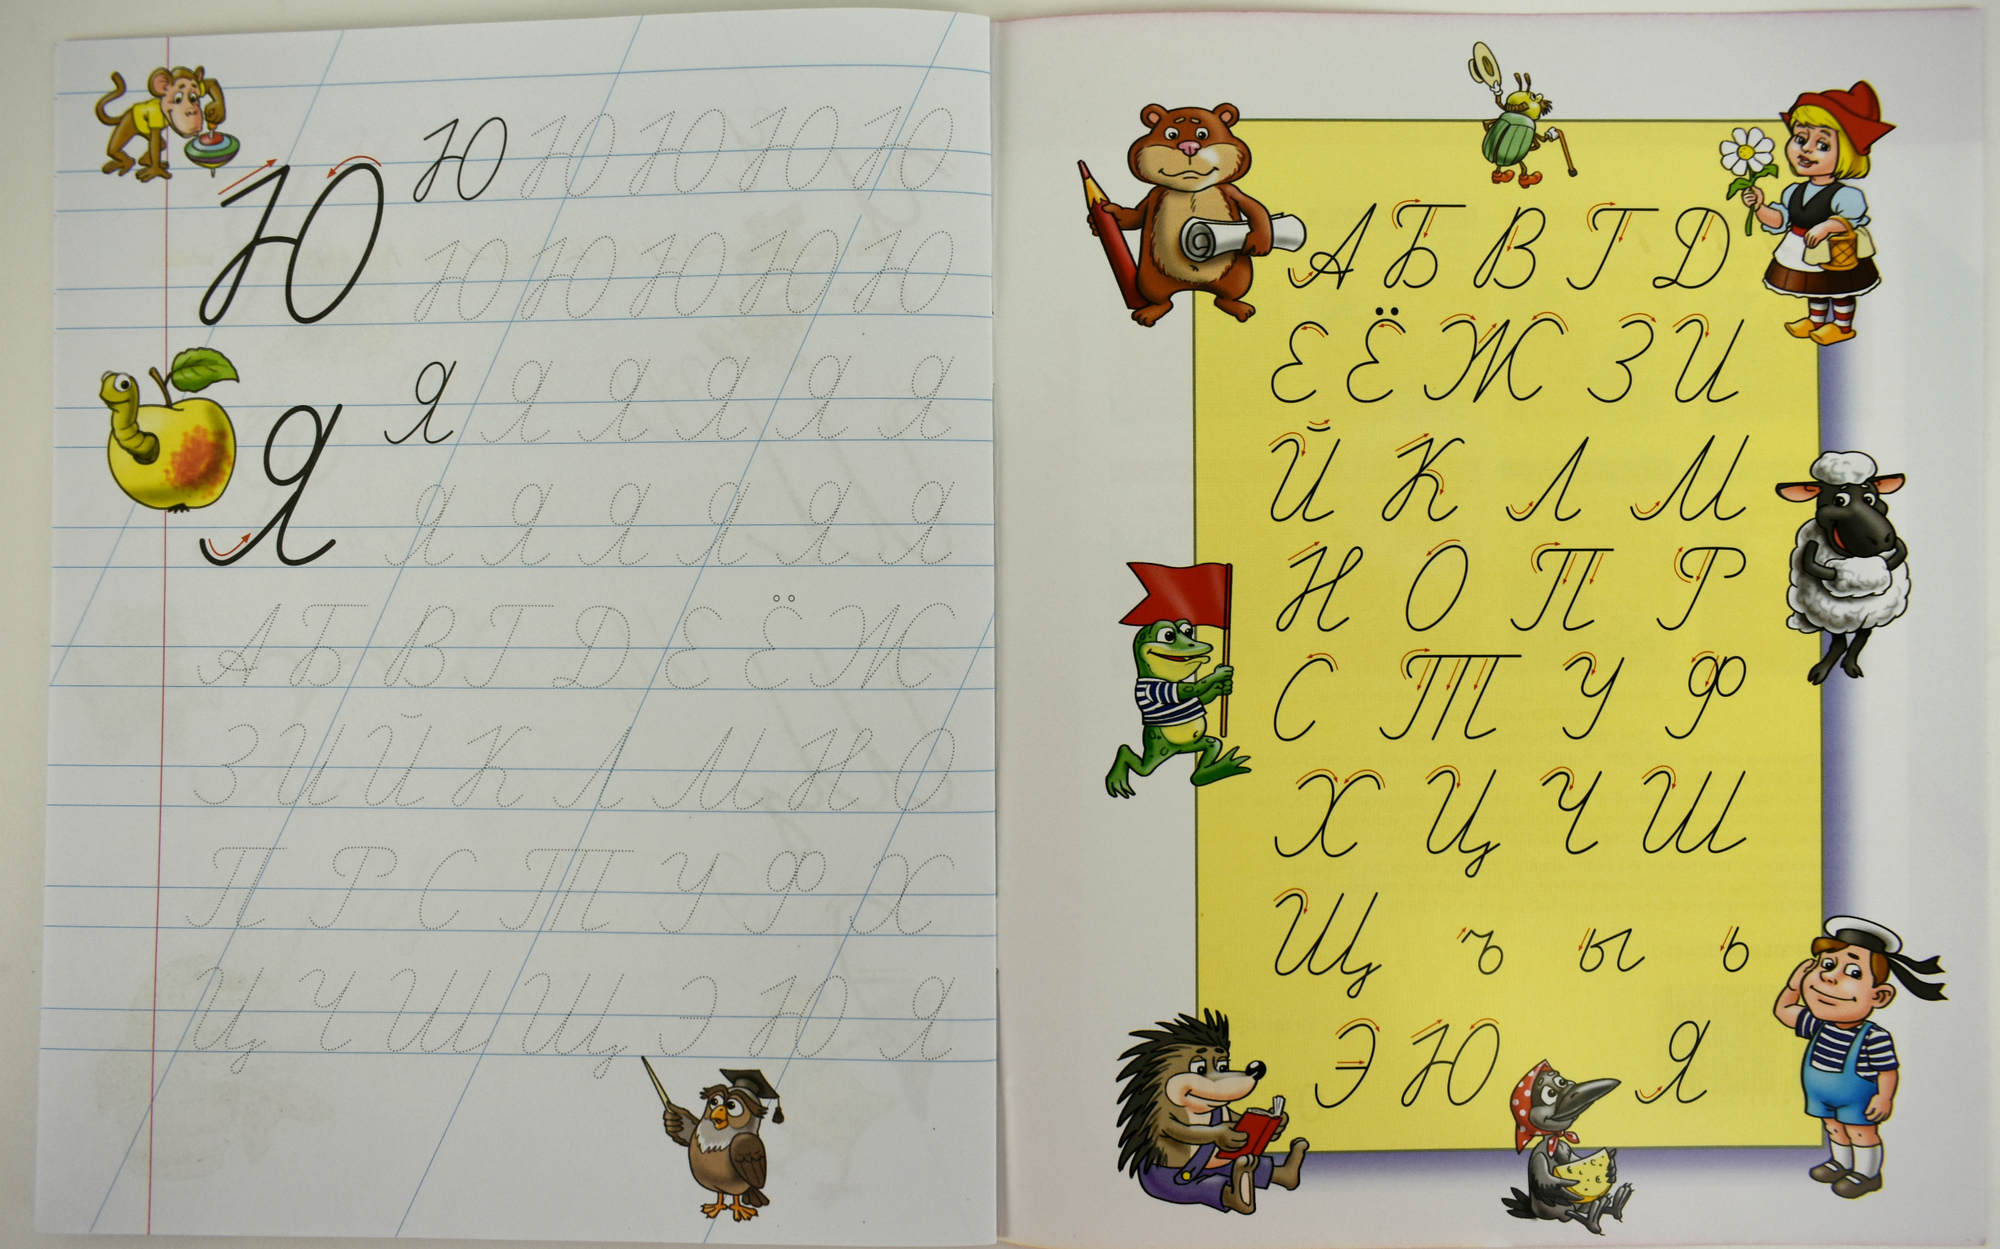 Ю Ю Ю Ю Ю Ю Ю
Ю Ю Ю Ю Ю
Я Я Я Я Я Я Я
Я Я Я Я Я Я
А Б В Г Д Е Ё Ж
З И Й К Л М Н О
П Р С Т У Ф Х
Ц Ч Ш Щ Э Ю Я
А Б В Г Д
Е Ё Ж З И
Й К Л М
Н О П Р
С Т У Ф
Х Ц Ч Ш
Щ ъ ы ь
Э Ю Я